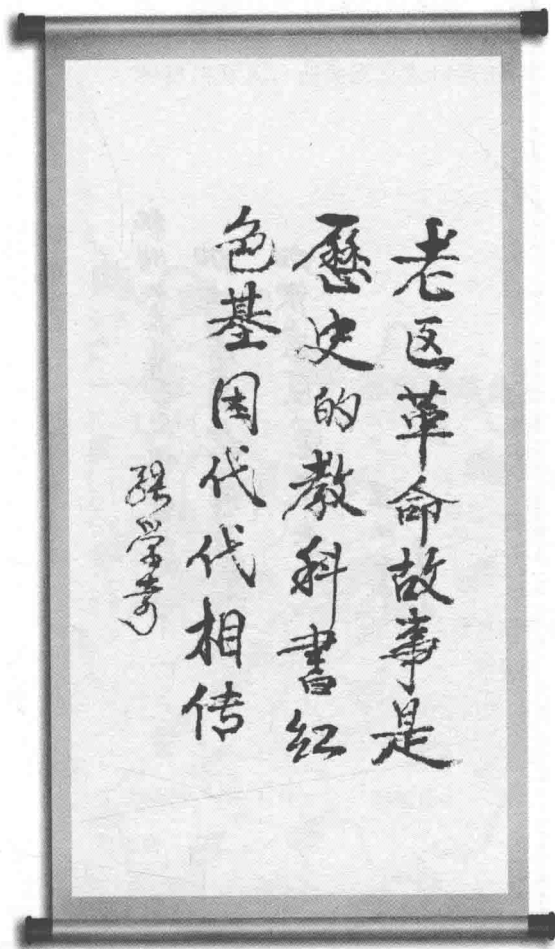 老区革命故事是
歷史的教科書紅
色基因代代相传
張学